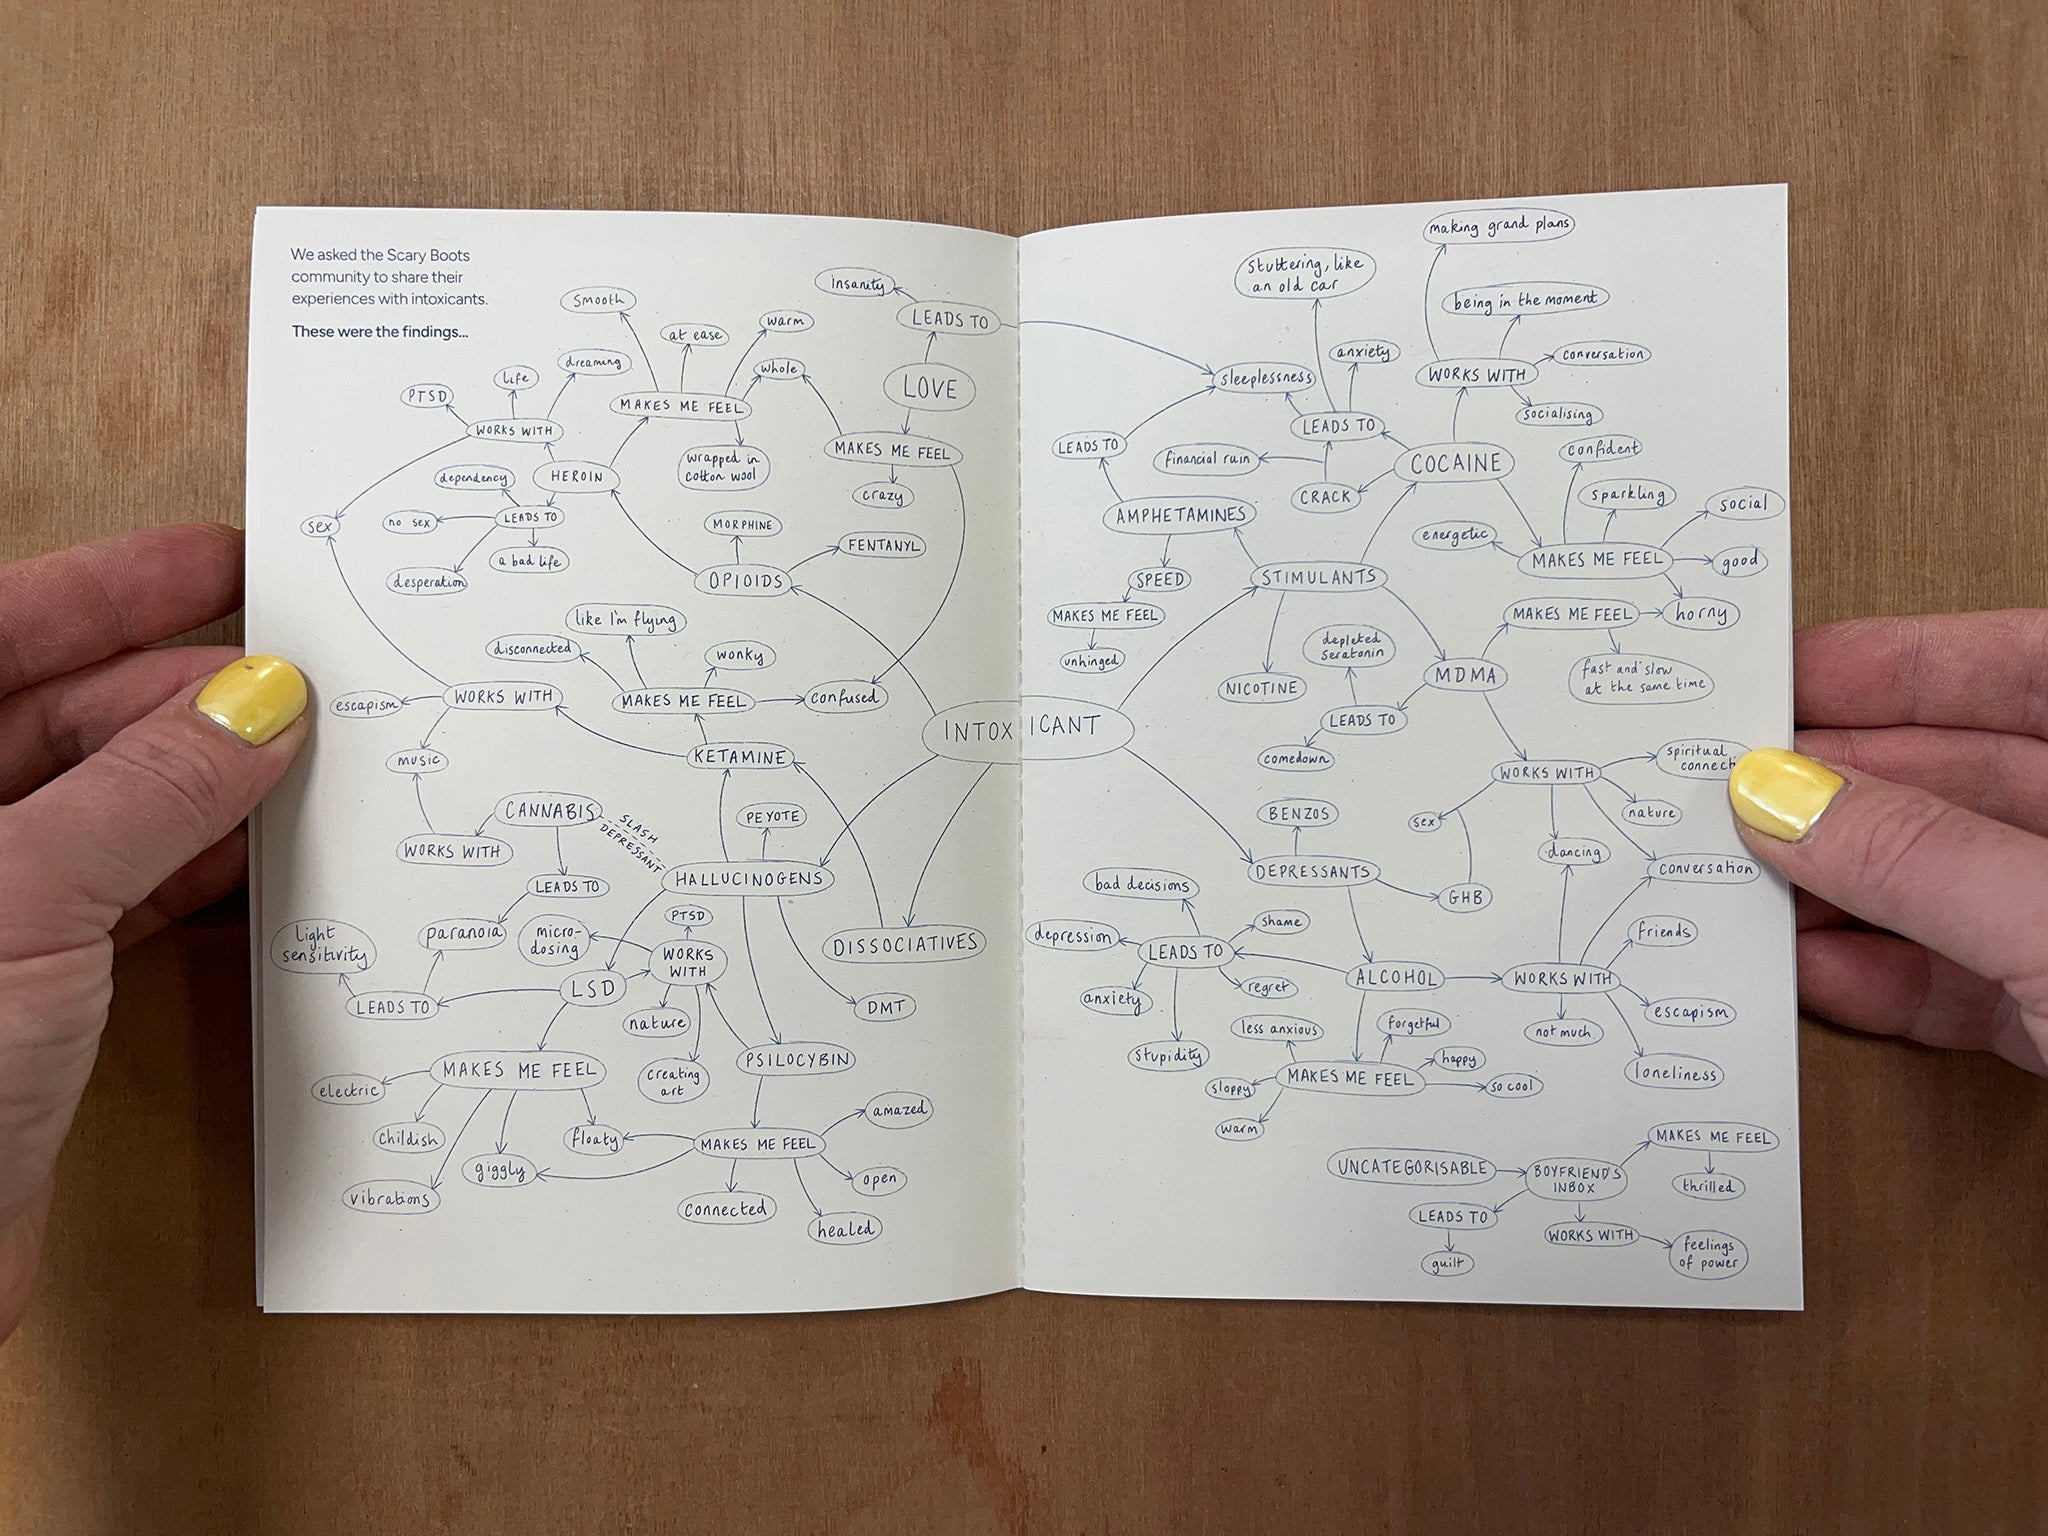 We asked the Scary Boots
community to share their
experiences with intoxicants.
These were the findings...
smooth
at ease
warm
whole
insanity
LEADS TO
LOVE
MAKES ME FEEL
crazy
PTSD
life
dreaming
WORKS WITH
MAKES ME FEEL
wrapped in
cotton wool
HEROIN
dependency
no sex
LEADS TO
a bad life
desperation
sex
MORPHINE
FENTANYL
OPIOIDS
like I'm flying
disconnected
wonky
MAKES ME FEEL
confused
escapism
WORKS WITH
music
KETAMINE
INTOXICANT
CANNABIS
SLASH
DEPRESSANT
PEYOTE
WORKS WITH
LEADS TO
HALLUCINOGENS
paranoia
light
sensitivity
LEADS TO
micro-
dosing
PTSD
WORKS
WITH
DISSOCIATIVES
LSD
nature
DMT
creating
art
PSILOCYBIN
MAKES ME FEEL
electric
childish
vibrations
giggly
floaty
MAKES ME FEEL
amazed
open
connected
healed
making grand plans
stuttering, like
an old car
being in the moment
anxiety
conversation
sleeplessness
WORKS WITH
socialising
LEADS TO
LEADS TO
financial ruin
COCAINE
confident
CRACK
sparkling
social
AMPHETAMINES
energetic
MAKES ME FEEL
good
SPEED
STIMULANTS
MAKES ME FEEL
unhinged
MAKES ME FEEL
horny
depleted
seratonin
fast and slow
at the same time
NICOTINE
MDMA
LEADS TO
comedown
WORKS WITH
spiritual
nature
BENZOS
sex
dancing
conversation
DEPRESSANTS
GHB
bad decisions
shame
depression
LEADS TO
regret
anxiety
stupidity
ALCOHOL
WORKS WITH
friends
escapism
not much
loneliness
less anxious
forgetful
happy
sloppy
MAKES ME FEEL
so cool
warm
UNCATEGORISABLE
BOYFRIEND'S
INBOX
MAKES ME FEEL
thrilled
LEADS TO
guilt
WORKS WITH
feelings
of power